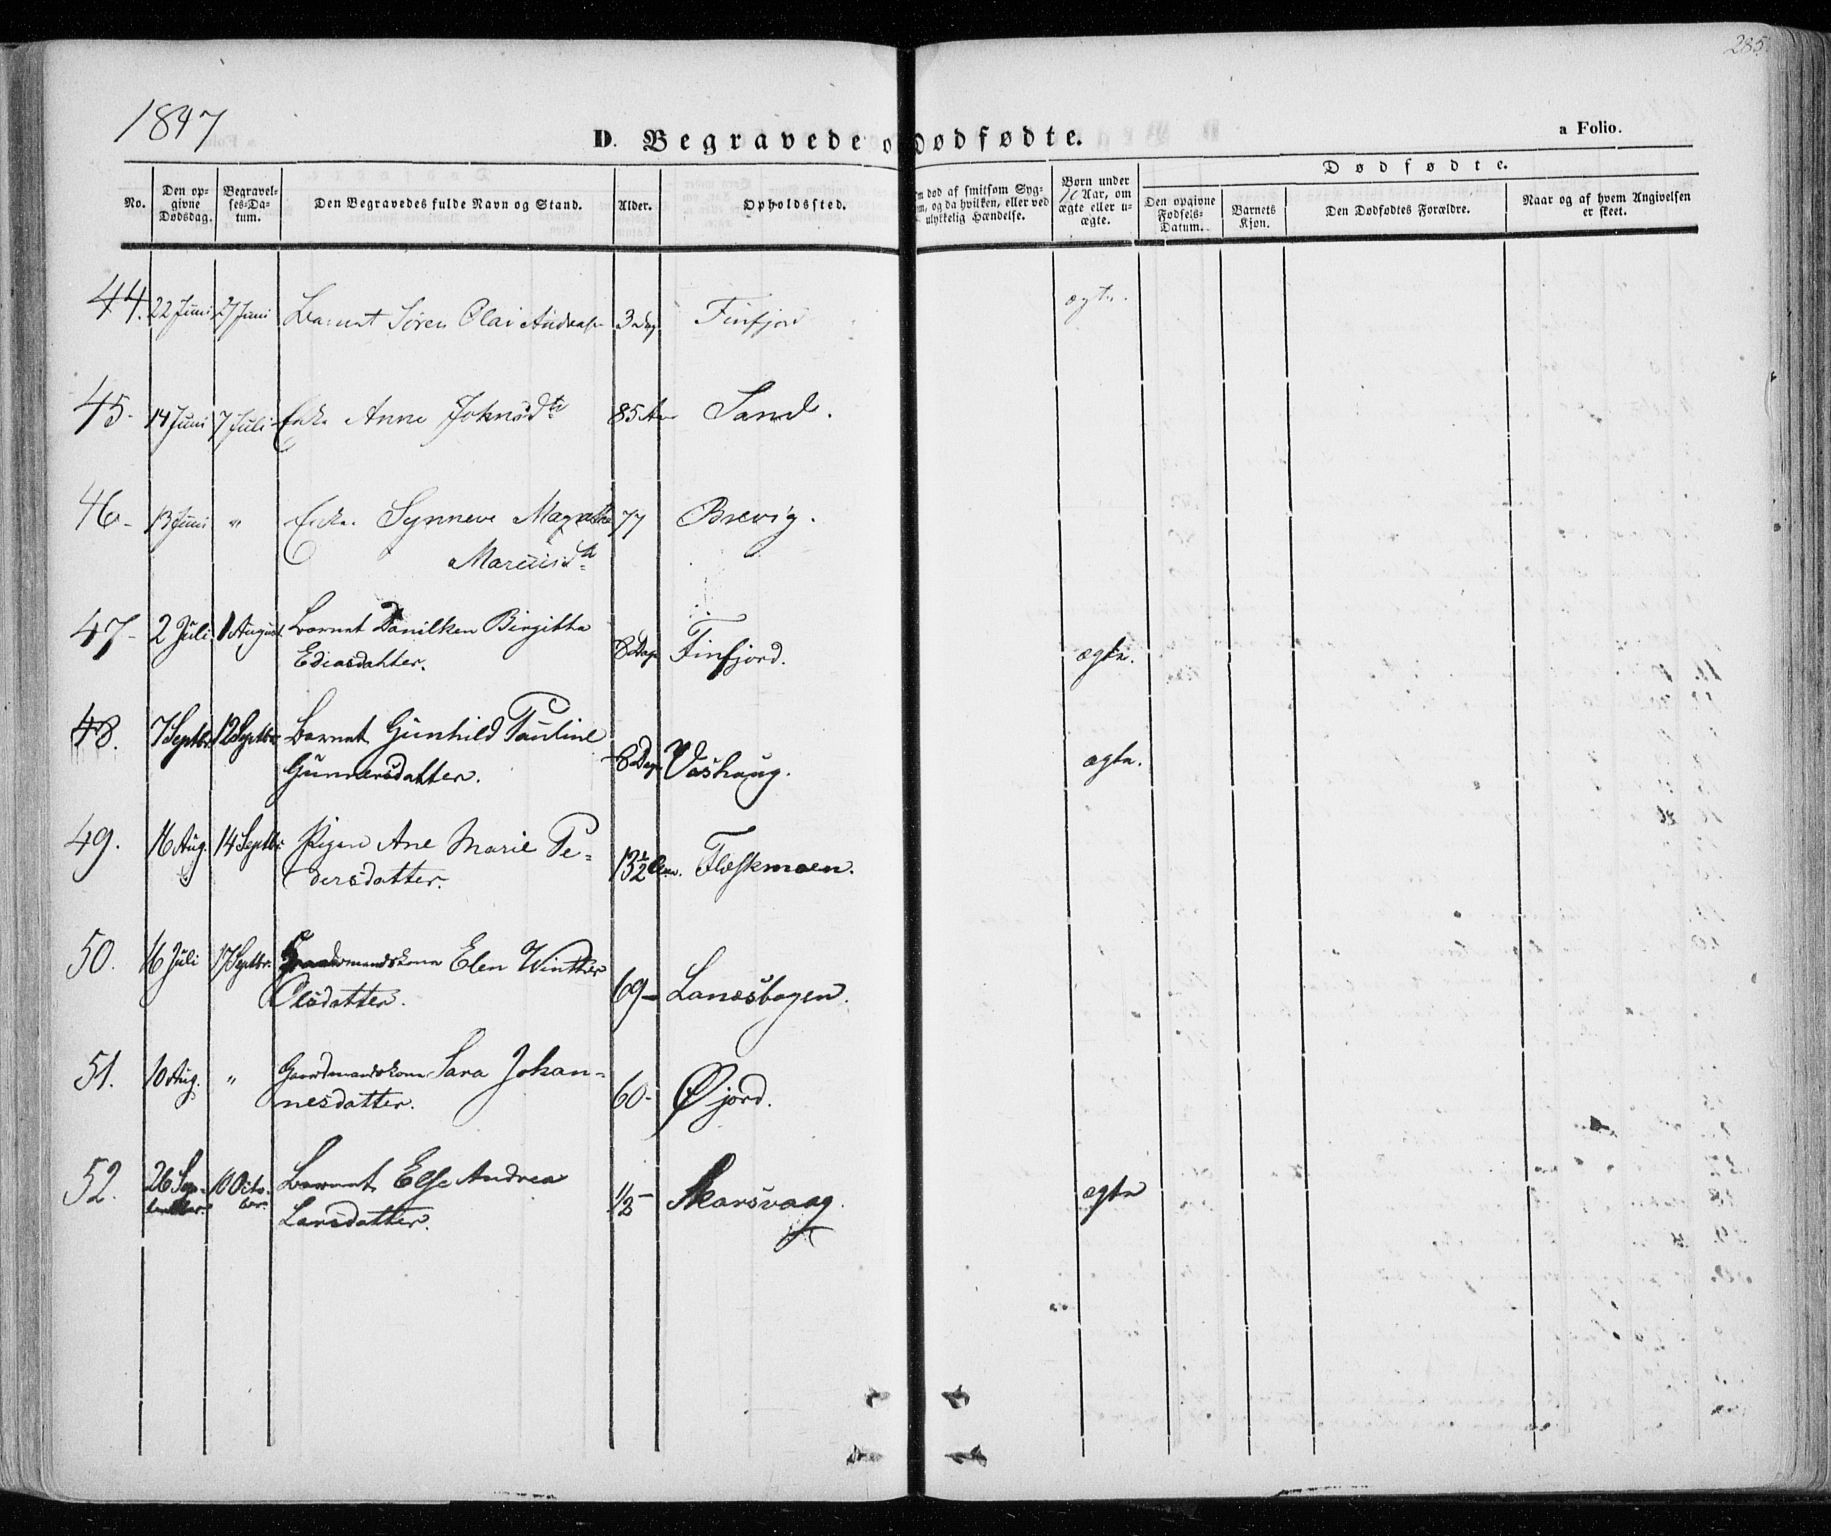 285
1847
D. Begravede o dødfødte.
a Folio.
No.
Den op-
givne
Dødsdag.
Begravel-
ses-Da-
tum.
Den Begravedes fulde Navn og Stand.
Alder.
Opholdssted.
m død af smitsom Syg-
om, og da hvilken, eller ved
ulykkelig Hændelse.
Børn under
10 Aar, om
ægte eller u-
ægte.
Dødfødte.
Den opgivne
Fødsels-
Datum.
Barnets
Kjøn.
Den Dødfødtes Forældre.
Naar og af hvem Angivelsen
er skeet.
44. 22 Juni 27 Juni Barnet Søren Olai Andreas 3 Dag Finfjord ægte.
45. 14 Juni 7 Juli Enke Anne Johnsdtr 85 Aar Sand.
46. 13 Juni " Enke Synneve 77 Brevig.
Marcusdtr
47. 2 Juli 1 August Barnet Danilken Birgitha
Ediasdatter. 8 Dage Finfjord. ægte.
48. 7 Septbr 12 Septbr Barnet Gunhild Pauline
Gunnersdatter. 8 Dage Vashaug. ægte.
49. 16 Aug. 14 Septbr Pigen Ane Marie Pe-
dersdatter. 13½ Flæskmoen.
50. 16 Juli 17 Septbr. Gaardmandskone Elen Winther
Olsdatter. 69 - Lanesbogen.
51. 10 Aug. " Gaardmandskone Sara Johan-
nesdatter. 60 - Øjord.
52. 26 Sep- 10 Octo- Barnet Else Andrea
tember. ber. Larsdatter. ½ - Skarsvaag. ægte